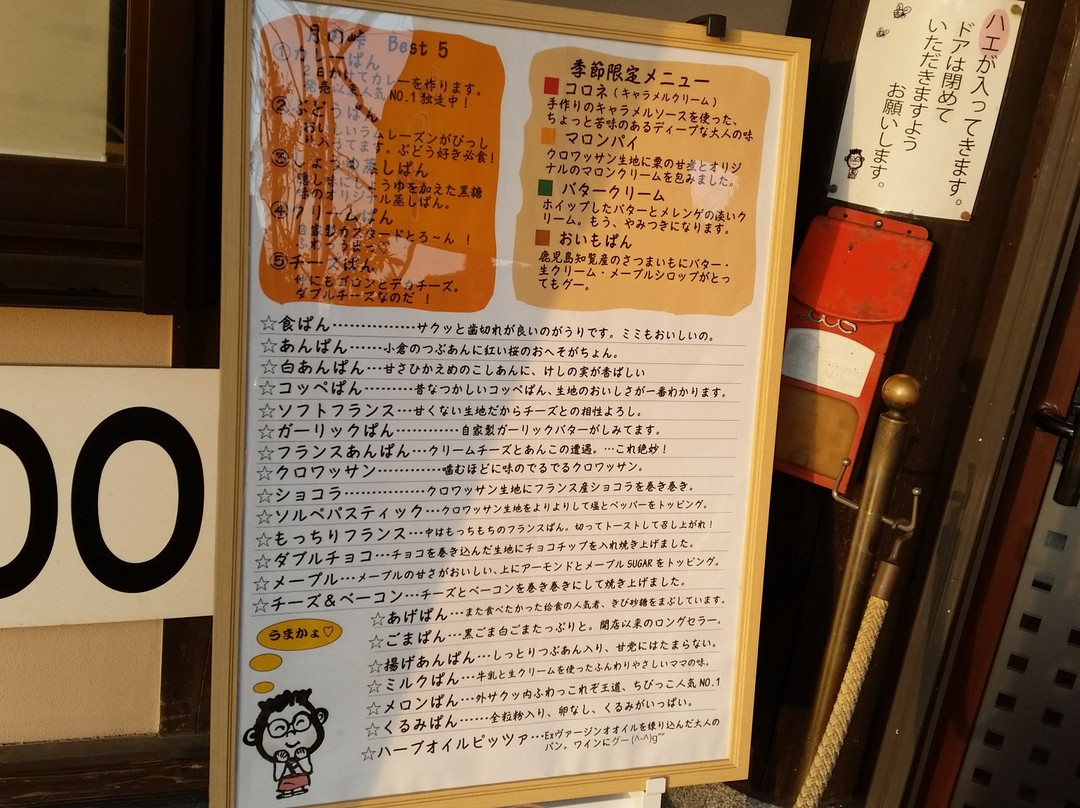 月の峠 Best 5
①カレーぱん
2日かけてカレーを作ります。
発売以来人気NO.1独走中！
②ぶどうぱん
おいしいラムレーズンがびっし
り入ってます。ぶどう好き必食！
③しょうゆ蒸しぱん
隠し味にしょうゆを加えた黒糖
味のオリジナル蒸しぱん。
④クリームぱん
自家製カスタードとろ～ん！
ふわっう出っ
⑤チーズぱん
にもゴロンとデカチーズ。
ダブルチーズなのだ！
季節限定メニュー
コロネ（キャラメルクリーム）
手作りのキャラメルソースを使った、
ちょっと苦味のあるディープな大人の味
マロンパイ
クロワッサン生地に栗の甘煮とオリジ
ナルのマロンクリームを包みました。
バタークリーム
ホイップしたバターとメレンゲの淡いク
リーム。もう、やみつきになります。
おいもぱん
鹿児島知覧産のさつまいもにバター・
生クリーム・メープルシロップがとっ
てもグー。
☆食ぱん……………サクッと歯切れが良いのがうりです。ミミもおいしいの。
☆あんぱん……小倉のつぶあんに紅い桜のおへそがちょん。
☆白あんぱん…甘さひかえめのこしあんに、けしの実が香ばしい
☆コッペぱん………昔なつかしいコッペぱん、生地のおいしさが一番わかります。
☆ソフトフランス…甘くない生地だからチーズとの相性よろし。
☆ガーリックぱん…………自家製ガーリックバターがしみてます。
☆フランスあんぱん…クリームチーズとあんこの遭遇。…これ絶妙！
☆クロワッサン…………噛むほどに味のでるでるクロワッサン。
☆ショコラ……………クロワッサン生地にフランス産ショコラを巻き巻き。
☆ソルペパスティック…クロワッサン生地をよりよりして塩とペッパーをトッピング。
☆もっちりフランス…中はもっちもちのフランスぱん。切ってトーストして召し上がれ！
☆ダブルチョコ…チョコを巻き込んだ生地にチョコチップを入れ焼き上げました。
☆メープル…メープルの甘さがおいしい、上にアーモンドとメープルSUGARをトッピング。
☆チーズ＆ベーコン…チーズとベーコンを巻き巻きにして焼き上げました。
☆あげぱん…また食べたかった給食の人気者、きび砂糖をまぶしています。
☆ごまぱん…黒ごま白ごまたっぷりと。開店以来のロングセラー。
☆揚げあんぱん…しっとりつぶあん入り、甘党にはたまらない。
☆ミルクぱん…牛乳と生クリームを使ったふんわりやさしいママの味。
☆メロンぱん…外サクッ内ふわっこれぞ王道、ちびっこ人気NO.1
☆くるみぱん……全粒粉入り、卵なし、くるみがいっぱい。
☆ハーブオイルピッツァ…Exヴァージンオオイルを練り込んだ大人の
パン。ワインにグー(^-^)g""
うまかぁ♡
ハエが入ってきます。
ドアは閉めて
いただきますよう
お願いします。
00